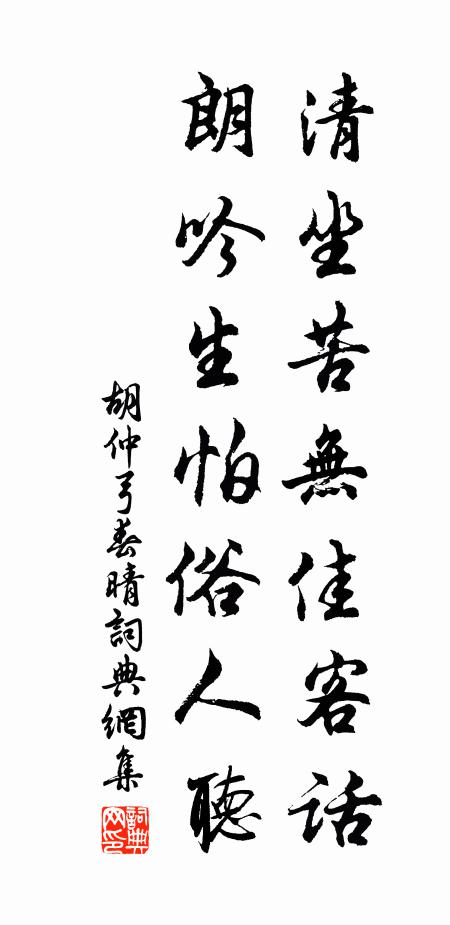 清坐苦無佳客話
朗吟生怕俗人聽
胡仲弓春晴詞典網集
詞典网印